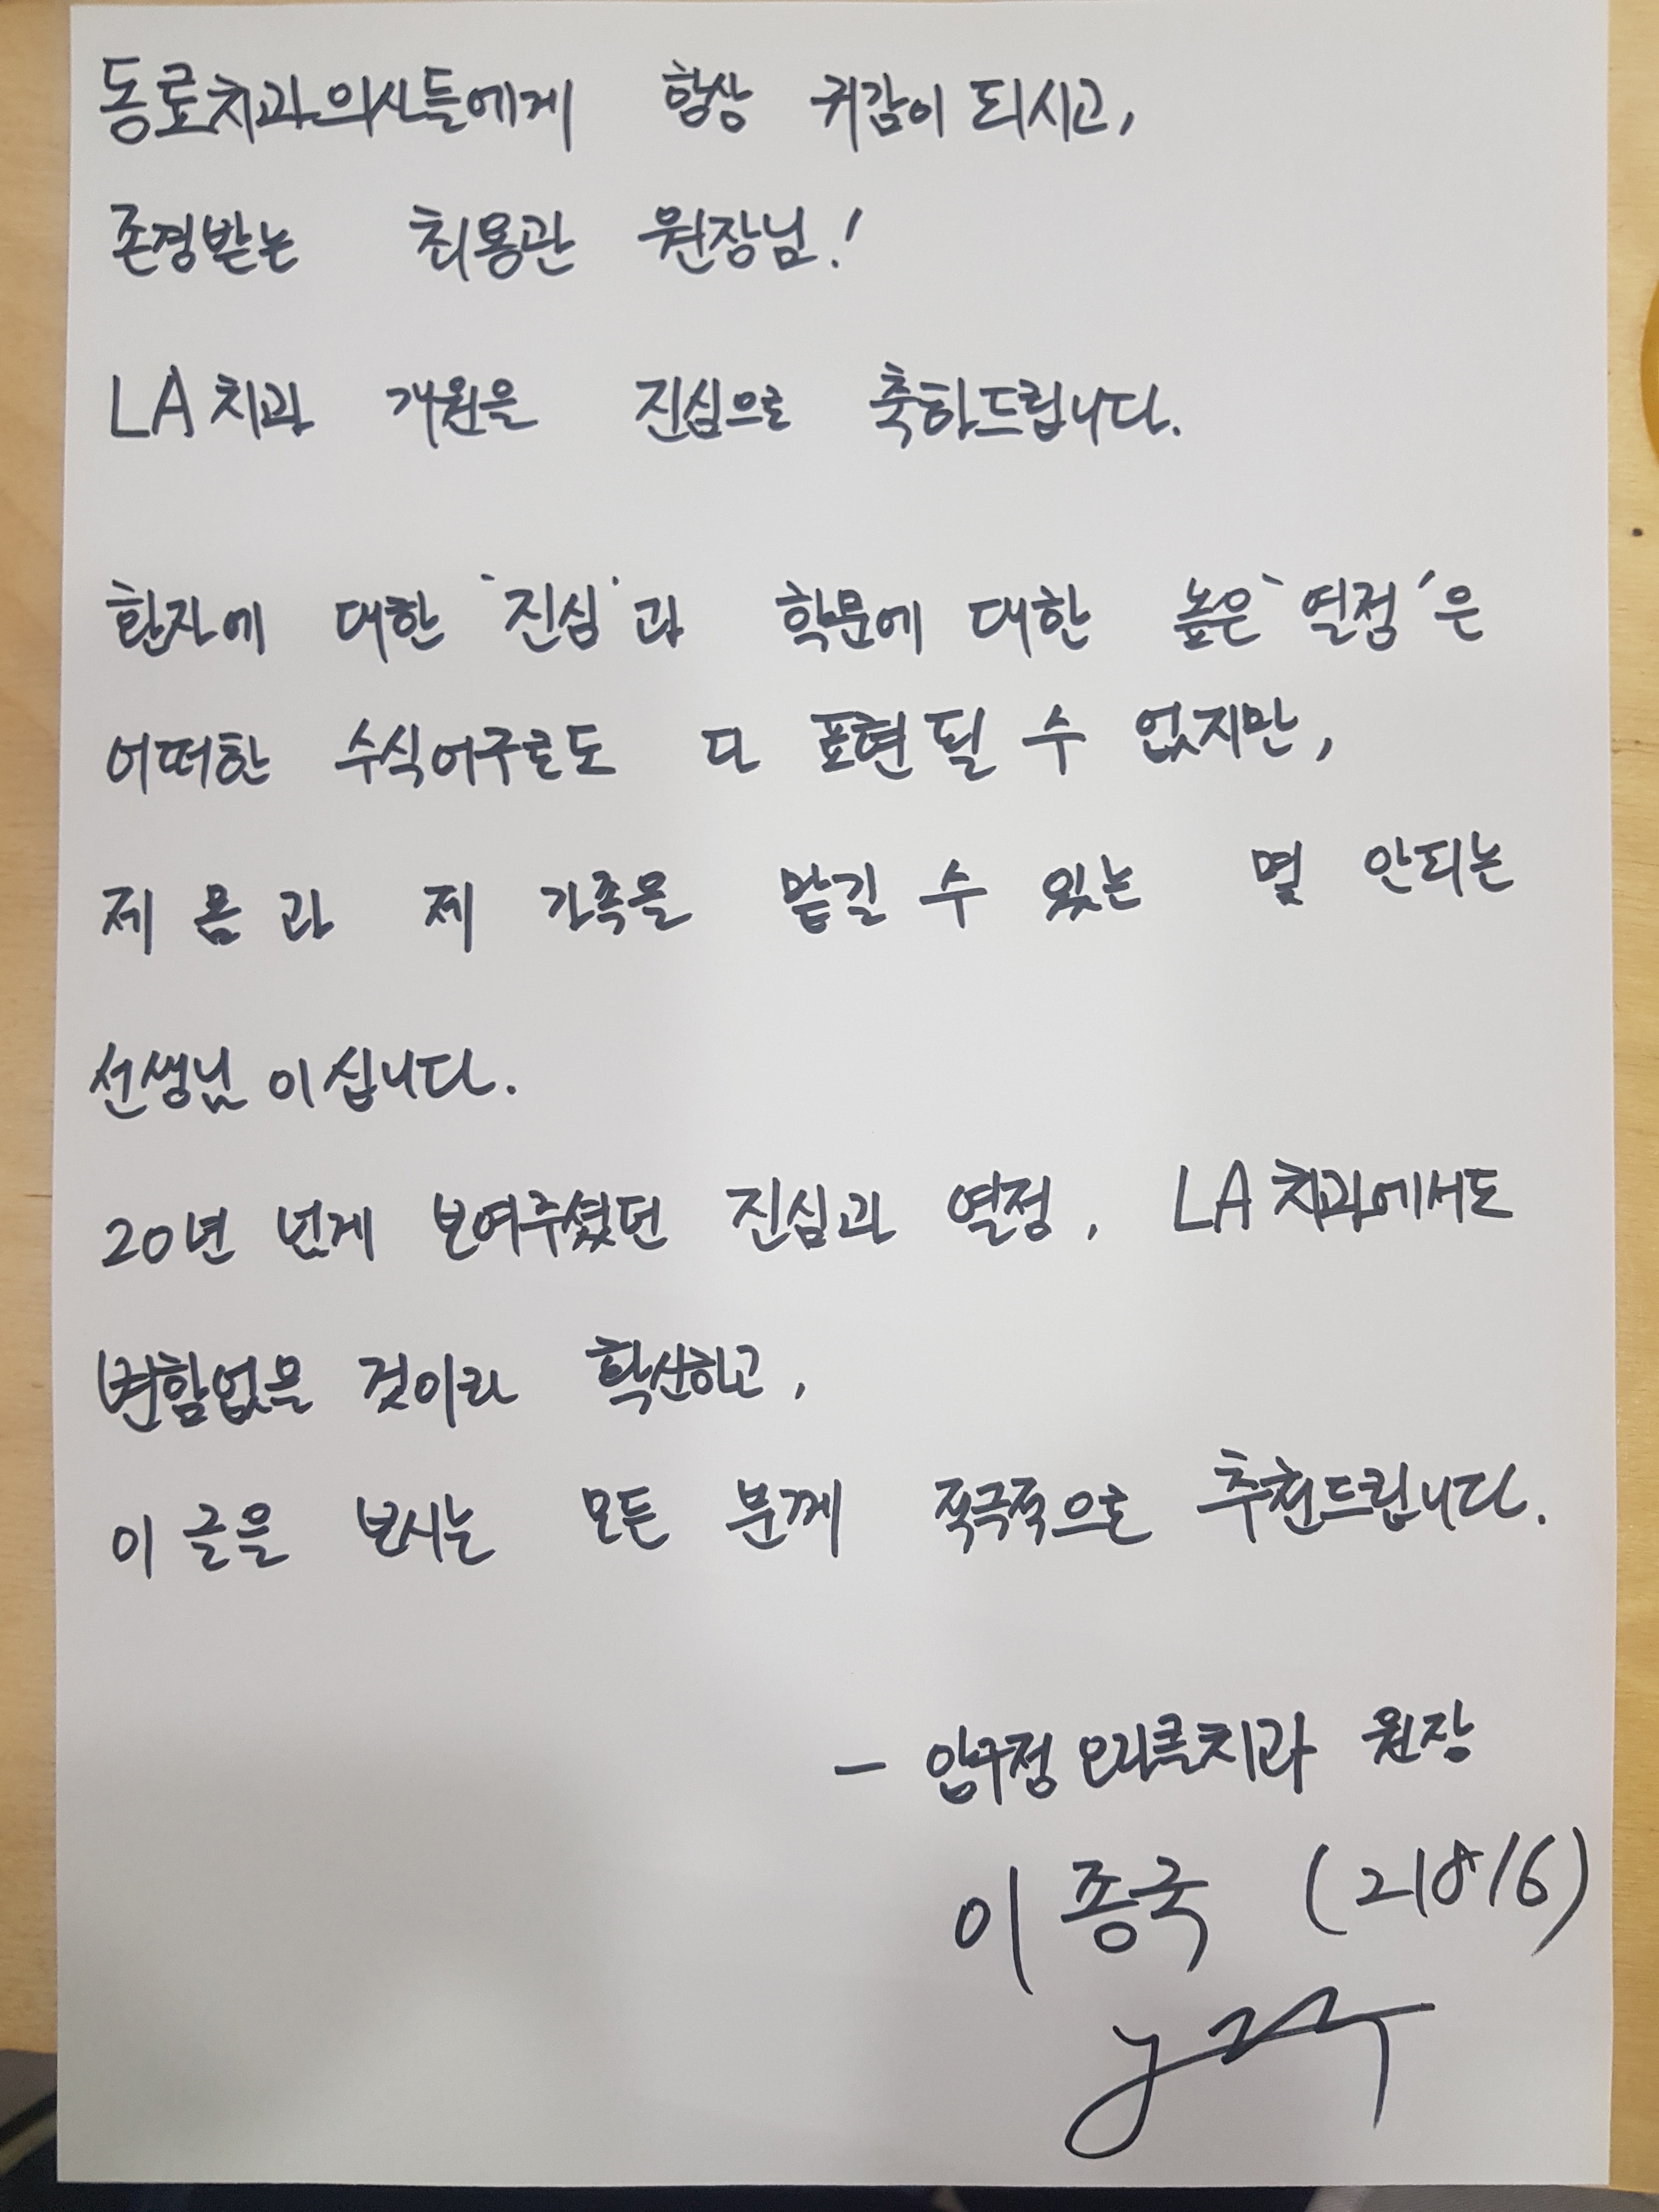 동료치과의사들에게 항상 귀감이 되시고,
존경받는 최용관 원장님!
LA치과 개원을 진심으로 축하드립니다.
환자에 대한 '진심'과 학문에 대한 높은 '열정'은
어떠한 수식어구로도 다 표현될 수 없지만,
제 몸과 제 가족을 맡길 수 있는 몇 안되는
선생님이십니다.
20년 넘게 보여주셨던 진심과 열정, LA치과에서도
변함없을 것이라 확신하고,
이 글을 보시는 모든 분께 적극적으로 추천드립니다.
- 압구정 오라클치과 원장
이종국 (21816)